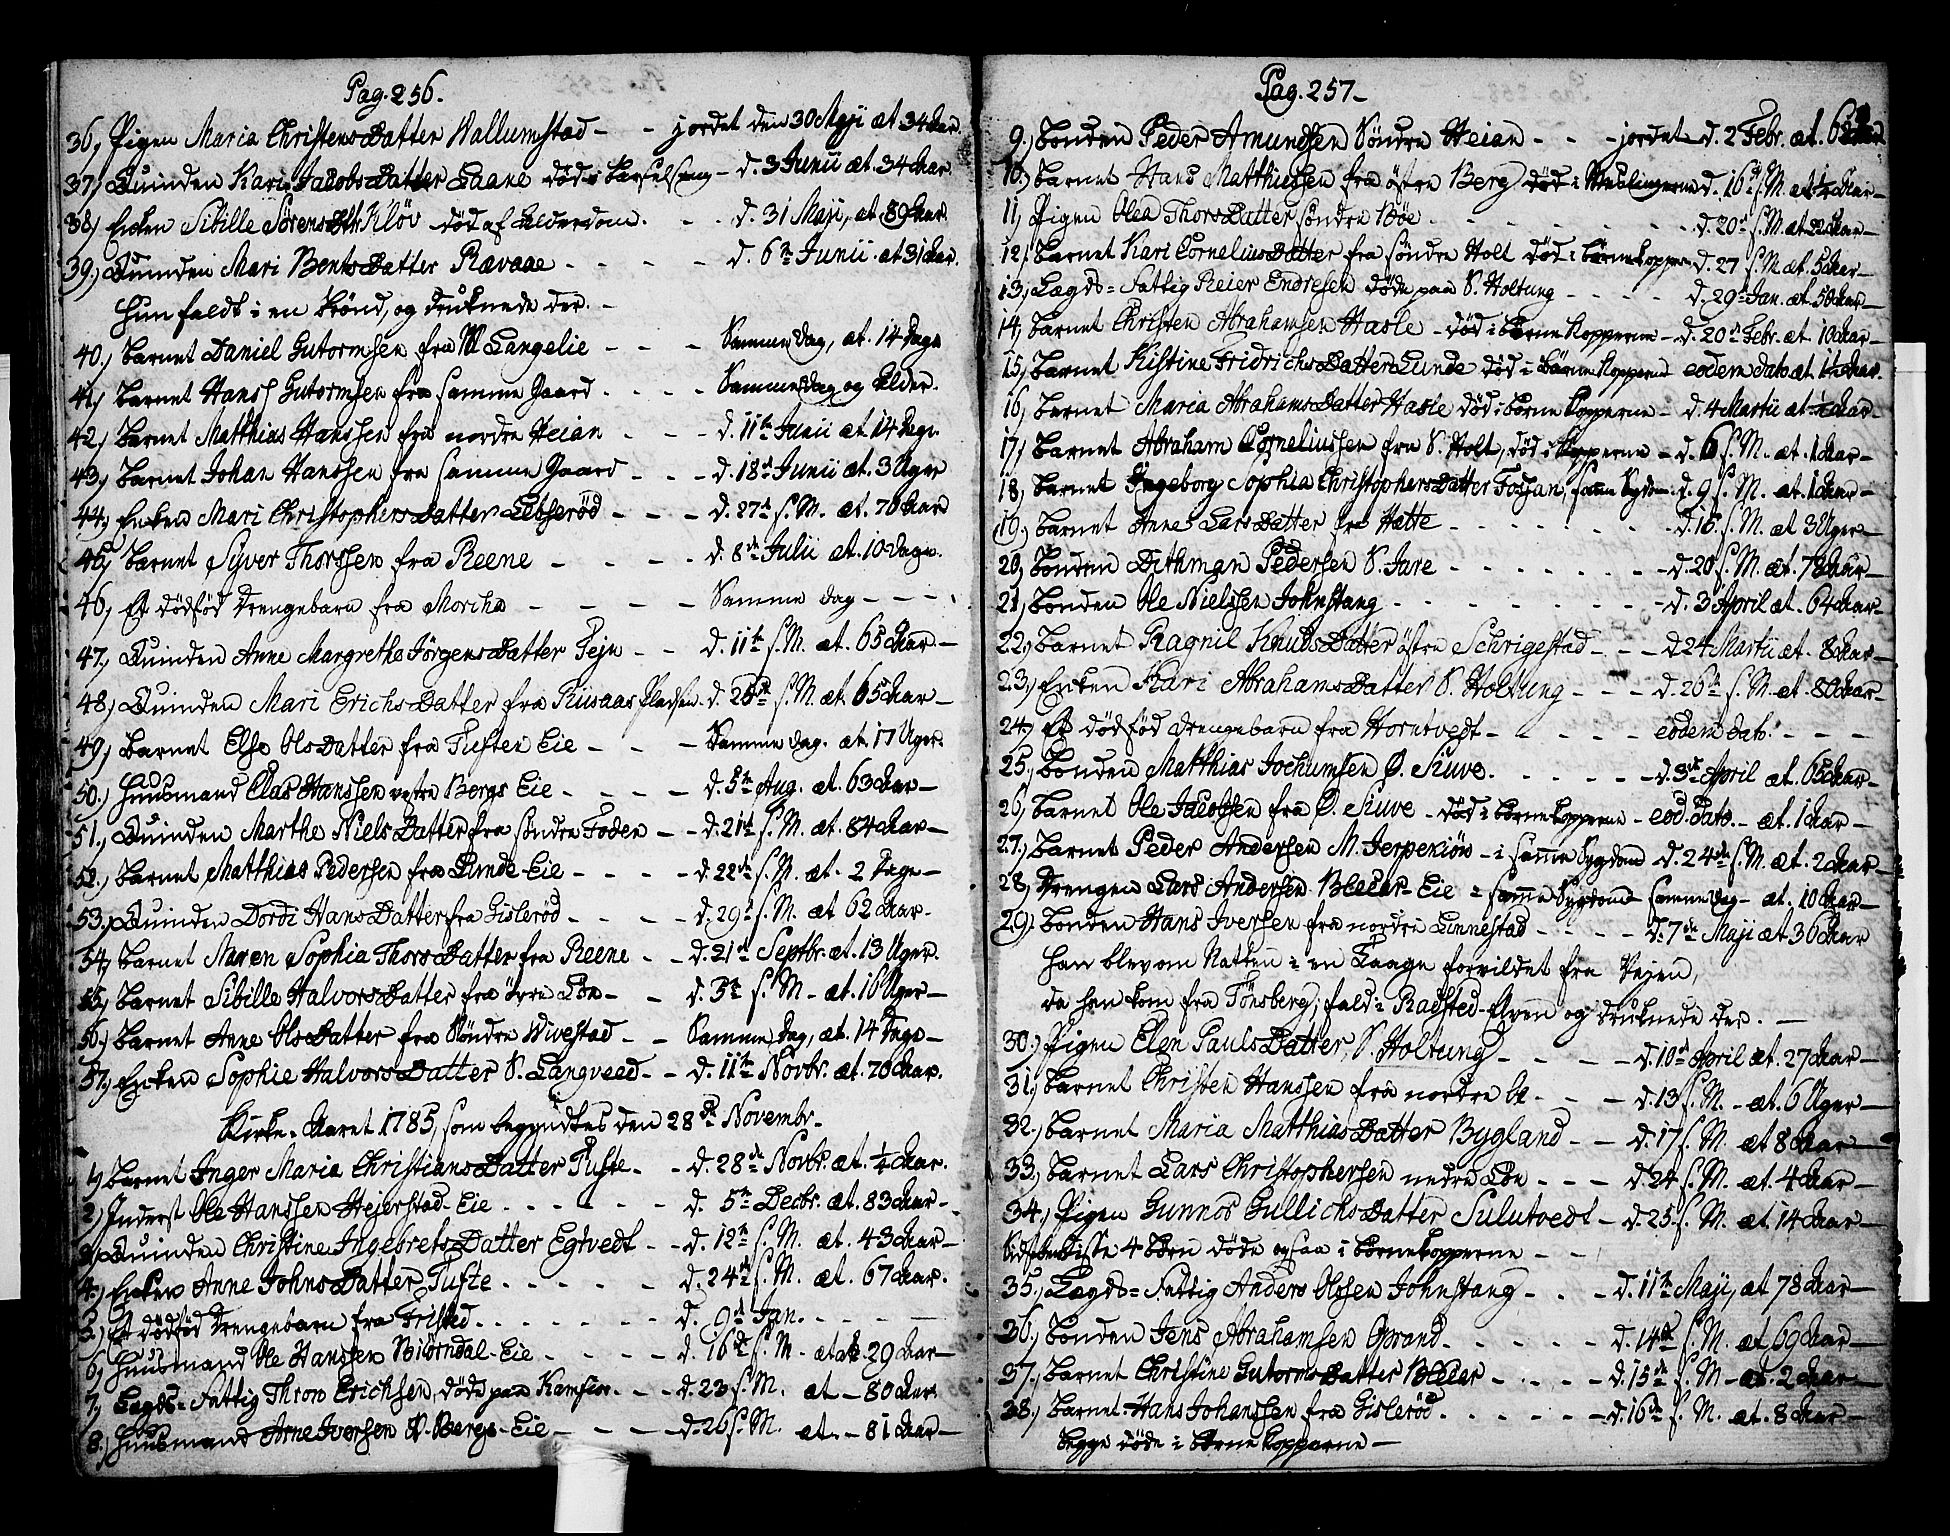 Pag. 256.
36, Pigen Maria ChristensDatter Wallumstad - - jordet den 30 Maji æt 34 Aar.
37, Quinden Kari JacobsDatter Laane død i barselseng - d. 3 Junii æt. 34 Aar.
38, Enken Sibille SørensDtr Kløv død af Alderdom. - - d. 31 Maji, æt. 89 Aar.
39, Quinden Mari BentsDatter Rævaae - - - - d. 6te Junii æt 31 Aar.
Hun faldt i en brønd, og druknede der. -
40, barnet Daniel Gutormsen fra Langelie - - - Samme dag, æt. 14 Dage
41, barnet Hans Gutormsen fra samme Gaard - - - - Samme dag og Alder.
42, barnet Matthias Hanssen fra nordre Heian - - - d. 11te Junii æt. 14 Dage.
43, barnet Johan Hanssen fra samme Gaard - - - d. 18de Junii æt. 3 Uger
44, Enken Mari ChristophersDatter Lebserød - - - d. 27de s. M. æt. 70 Aar
45, barnet Syver Thorssen fra Reene - - - - d. 8de Julii æt. 10 Dage.
46, Et dødfød drengebarn fra Morcha - - - - Samme dag - - -
47, Quinden Anne Margrethe JörgensDatter Fejn - - d. 11te s. M. æt. 65 Aar -
48, Quinden Mari ErichsDatter fra Riisaas Pladsen - d. 25de s. M. æt. 65 Aar -
49, barnet Else OlsDatter fra Tufter Eie - - - Samme dag. æt. 17 Uger.
50, Huusmand Clas Hanssen vestre Bergs Eie - - - - d. 5te Aug. æt. 63 Aar -
51, Quinden Marthe NielsDatter fra søndre Foden - - d. 21de s. M. æt. 84 Aar -
52, barnet Matthias Pedersen fra Lunde Eie - - - - d. 22de s. M. æt. 2 Dage -
53, Quinden Dordi HansDatter fra Gislerød - - - - d. 29de s. M. æt 62 Aar -
54, barnet Maren Sophia ThorsDatter fra Reene - - d. 21de Septbr. æt. 13 Uger.
55, barnet Sibille HalvorsDatter fra övre Lön - - d. 3te s. M - æt. 16 Uger -
56, barnet Anne OlsDatter fra Söndre Wivestad - - Samme Dag, æt. 14 Dage -
57, Enken Sophie HalvorsDatter S. Langveed - - d. 11te Novbr. æt. 70 Aar.
Kirke-Aaret 1785, som begyndtes den 28de Novembr.
1, barnet Inger Maria ChristiansDatter Tufte - - d. 28de Novbr. æt. 1/4 Aar.
2, Inderst Ole Hanssen Hejerstad Eie - - - - - d. 5te Decbr. æt. 83 Aar -
3, Quinden Christine IngebretsDatter Egtvedt - - d. 12te s. M. æt. 43 Aar -
4, Enken Anne JohnsDatter Tufte - - - - - d. 24de s. M. æt. 67 Aar.
5, Et dødfød drengebarn fra Fristad - - - - - d. 9de Jan. - - - -
6, Huusmand Ole Hanssen Biörndal-Eie - - - - d. 16de s. M - æt. 29 Aar -
7, Lægds-Fattig Thron Erichsen, døde paa Kamsion - - d. 23 s. M. æt - 80 Aar
8, Huusmand Arne Iversen N. Bergs-Eie - - - - d. 26 s. M. æt. - 81 Aar -
Pag. 257 -
9, Bonden Peder Amundsen Söndre Heian - - - jordet d. 2 Febr. æt.
10, barnet Hans Matthiessen fra östre Berg död i Meslingerne d. 16 s. M. æt Aar -
11, Pigen Olea ThorsDatter söndre Böe - - - - - - d. 20de s. M. æt. 22 Aar -
12, barnet Kari CorneliusDatter fra söndre Holt död i börnekopperne d. 27 s. M. æt. 5 Aar -
13, Lægds-Fattig Reier Endresen døde paa S. Holtung - - - - d. 29de Jan. æt. 58 Aar -
14, barnet Christen Abrahamsen Hasle - död i börnekopperne - d. 20de Febr. æt. 10 Aar -
15, barnet Kistine FridrichsDatter Lunde död i Börnekopperne eodem dato æt. 1 1/2 Aar.
16, barnet Maria AbrahamsDatter Hasle död i börnekopperne - d. 4 Martii æt Aar -
17, barnet Abraham Corneliussen fra S. Holt, död i kopperne - d. 6 s. M. æt. 1 Aar -
18, barnet Ingeborg Sophia ChristophersDatter Fossan, samme Sygdom - d. 9 s. M. æt. 1 Aar -
19, barnet Anne LarsDatter fra Hætte - - - - - - d. 16. s. M. æt 3 Uger -
20, Bonden Dithman Pedersen S. Jare - - - - - - d. 20 s. M. æt. 78 Aar -
21, Bonden Ole Nielssen Johnstang - - - - - - d. 3 April æt. 64 Aar -
22, barnet Ragnil KnudsDatter östre Schrigestad - - - d 24 Martii æt. 8 Aar -
23, Enken Kari AbrahamsDatter S. Holtung - - - d. 26de s. M. æt. 80 Aar -
24, Et dødfød drengebarn fra Horntvedt - - - - - eodem dato. - - -
25, Bonden Matthias Jochumsen Ø. Siuve - - - - - d. 3de April æt. 65 Aar -
26, barnet Ole Jacobsen fra Ø. Siuve - död i börnekopperne - eod. dato. - æt. 1 Aar -
27, barnet Peder Andersen M. Jerpekiön - i samme Sygdom d. 24de s. M. æt. 2 Aar -
28, drengen Lars Andersen Bleear-Eie i samme Sygdom samme dag - æt. 10 Aar -
29, bonden Hans Iversen fra nordre Linnestad - - - - d. 7de Maji æt 36 Aar
Han blev om Natten i en Taage forvildet fra Vejen,
da han kom fra Tönsberg, fald i Radsted-Elven og druknede der. -
30, Pigen Elen PaulsDatter, S. Holtung - - - - d. 10de April æt. 27 Aar -
31, barnet Christen Hanssen fra nordre Ae - - - - d. 13 s. M. - æt. 6 Uger -
32, barnet Maria MatthiasDatter Bygland - - d. 17 s. M. æt 8 Aar -
33, barnet Lars Christophersen nedre Lön - - - d 24 s. M. - æt. 4 Aar -
34, Pigen Gunnor GullichsDatter Sulutvedt - d. 25. s. M. æt. 14 Aar -
Sidste disse 4 börn døde ogsaa i börnekopperne - -
35, Lægds-Fattig Anders Olssen Johnstang - - - d. 11te Maji, æt 78 Aar -
36, Bonden Jens Abrahamsen Grand - - - - - d. 14de s. M. æt 69 Aar -
37, barnet Christine GutormsDatter Bleear - - - - d. 15de s. M - æt. 2 Aar -
38, barnet Hans Johanssen fra Gislerød - - - - - - d. 16de s. M. æt. 8 Aar -
begge døde i børnekopperne -